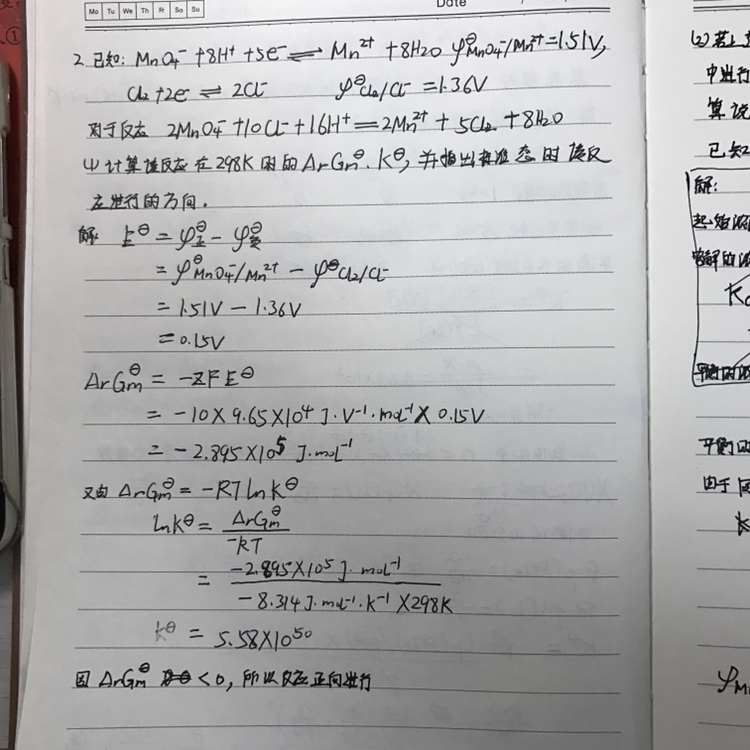 Mo Tu We Th Fr Sa Su
Date
2. 已知: MnO₄⁻ +8H⁺ +5e⁻ ⇌ Mn²⁺ +8H₂O φ^θ MnO₄⁻/Mn²⁺ =1.51V,
Cl₂ +2e⁻ ⇌ 2Cl⁻ φ^θ Cl₂/Cl⁻ =1.36V
对于反应 2MnO₄⁻ +10Cl⁻ +16H⁺ = 2Mn²⁺ + 5Cl₂ + 8H₂O
(1) 计算该反应在298K时的 ΔrGm^θ、K^θ, 并指出标准态时该反
应进行的方向.
解: E^θ = φ^θ正 - φ^θ负
= φ^θ MnO₄⁻/Mn²⁺ - φ^θ Cl₂/Cl⁻
= 1.51V - 1.36V
= 0.15V
ΔrGm^θ = -ZFE^θ
= -10 × 9.65×10⁴ J·V⁻¹·mol⁻¹ × 0.15V
= -2.895×10⁵ J·mol⁻¹
又由 ΔrGm^θ = -RTlnK^θ
lnK^θ = ΔrGm^θ
-RT
= -2.895×10⁵ J·mol⁻¹
-8.314J·mol⁻¹·K⁻¹ ×298K
K^θ = 5.58×10⁵⁰
因 ΔrGm^θ <0, 所以反应正向进行
(2) 若
中进行
算说
已知
解:
起始浓
溶解的
平衡时浓
平衡时
由于
φM